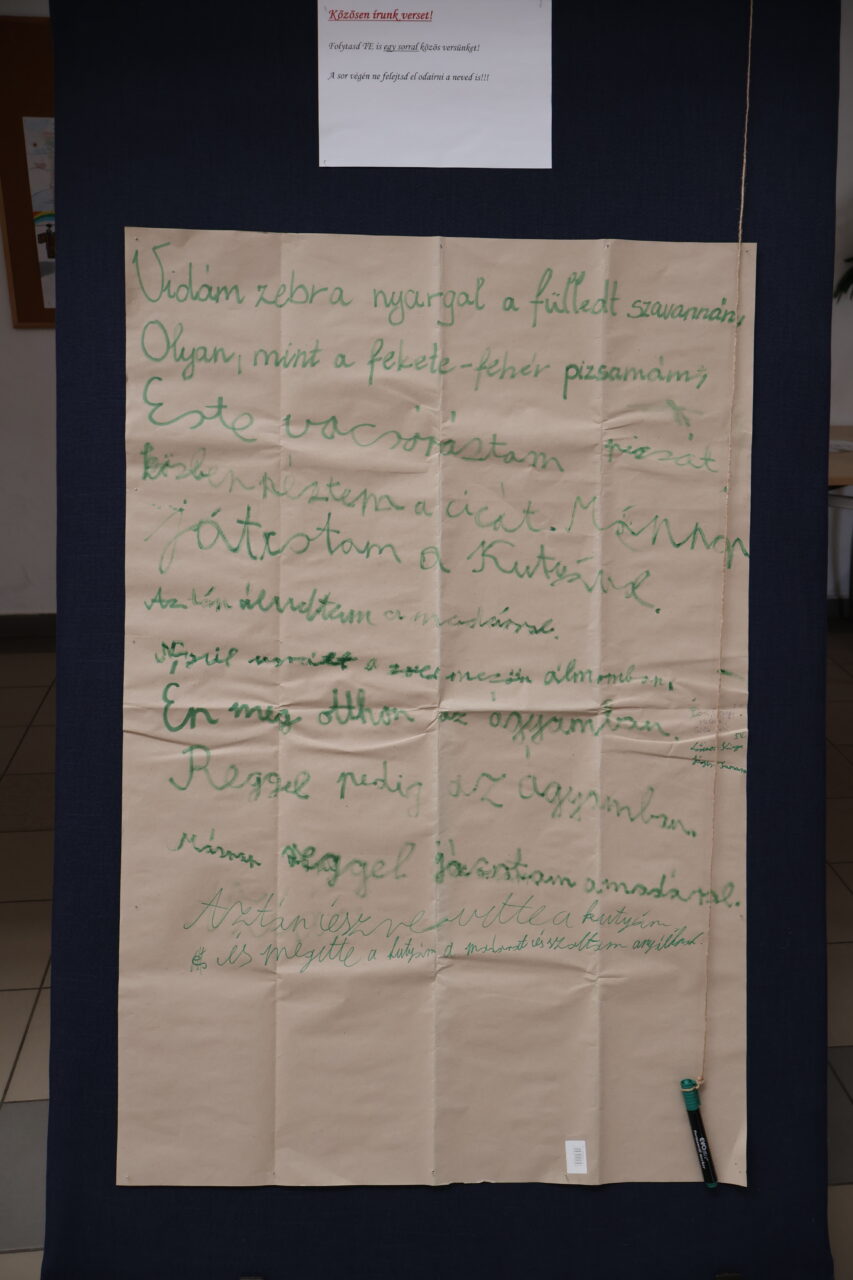 Közösen írunk verset!
Folytasd TE is egy sorral közös versünket!
A sor végén ne felejtsd el odaírni a neved is!!!
Vidám zebra nyargal a fülledt szavannán,
Olyan, mint a fekete-fehér pizsamám,
Este vacsoráztam pizzát
közben néztem a cicát. Másnap
játcstam a Kutyával.
Aztán aludtam a madárral.
Nyúl a zöld mezőn álmomban,
Én meg otthon az ágyamban.
Reggel pedig az ágyamban.
Másnap reggel jácotam a madáral.
Aztán észre vette a kutyám
és megette a kutyám a madarat és szoltam anyának.